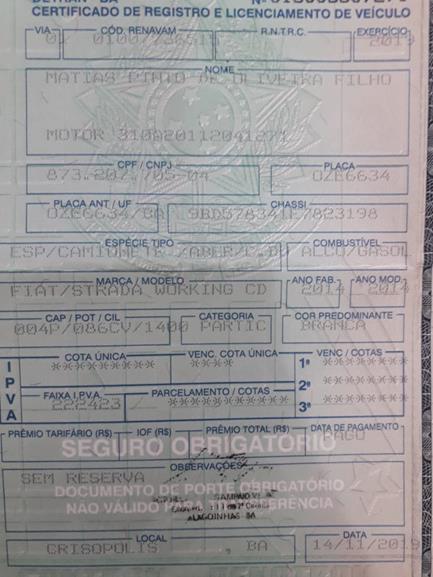 DETRAN - BA
CERTIFICADO DE REGISTRO E LICENCIAMENTO DE VEÍCULO
VIA CÓD. RENAVAM R.N.T.R.C. EXERCÍCIO
2019
NOME
MATIAS PINTO DE OLIVEIRA FILHO
MOTOR 310A20112041271
CPF / CNPJ PLACA
873.207.705-04 OZE6634
PLACA ANT / UF CHASSI
OZE6634/BA 9BD578341E7823198
ESPÉCIE TIPO COMBUSTÍVEL
ESP/CAMIONETE ALCO/GASOL
MARCA / MODELO ANO FAB. ANO MOD.
FIAT/STRADA WORKING CD 2014 2014
CAP / POT / CIL CATEGORIA COR PREDOMINANTE
004P/086CV/1400 PARTIC BRANCA
IPVA
COTA ÚNICA VENC. COTA ÚNICA VENC / COTAS
********* ******* 1ª *******
2ª *******
FAIXA I.P.V.A. PARCELAMENTO / COTAS
222423 / ********** 3ª *******
PRÊMIO TARIFÁRIO (R$) IOF (R$) PRÊMIO TOTAL (R$) DATA DE PAGAMENTO
PAGO
SEGURO OBRIGATÓRIO
OBSERVAÇÕES
SEM RESERVA
DOCUMENTO DE PORTE OBRIGATÓRIO
NÃO VÁLIDO PARA TRANSFERÊNCIA
ALAGOINHAS BA
LOCAL DATA
CRISOPOLIS , BA 14/11/2019